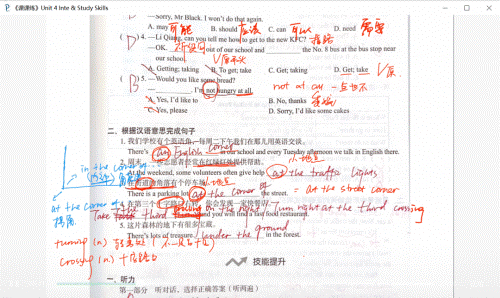 《课课练》Unit 4 Inte & Study Skills
—Sorry, Mr Black. I won't do that again.
A. may 可能 B. should 应该 C. can 可以 D. need 需要
4. —Li Qiang, can you tell me how to get to the new KFC? 指路
—OK. out of our school and the No. 8 bus at the bus stop near
our school. V原
A. Getting; taking B. To get; take C. Get; taking D. Get; take V原
5. —Would you like some bread?
— I'm not hungry at all. not at all 一点也不
A. Yes, I'd like to B. No, thanks
C. Yes, please D. Sorry, I'd like some cakes
二、根据汉语意思完成句子
1. 我们学校有个英语角,每周二下午我们在那儿用英语交谈。
There's an English corner at our school and every Tuesday afternoon we talk in English there.
2. 周末,一些志愿者经常在红绿灯处提供帮助。 小地点
At the weekend, some volunteers often give help at the traffic lights
in the corner of
在街道的角落有个停车场。
There is a parking lot at the corner of the street. = at the street corner
at the corner of
Take the third turning on the right = Turn right at the third crossing
and you will find a fast food restaurant.
5. 这片森林的地下有很多宝藏。
There's lots of treasure under the ground in the forest.
turning (n) 转弯处
crossing (n) 十字路口
技能提升
一、听力
第一部分 听对话,选择正确答案(听两遍)